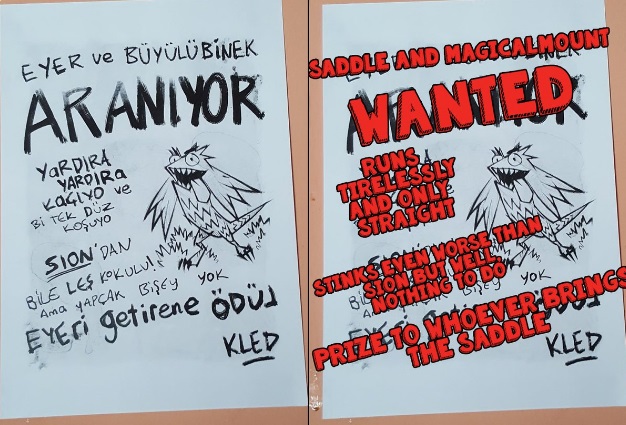 EYER ve BÜYÜLÜBİNEK
ARANIYOR
YARDIRA
YARDIRA
KAÇIYO ve
Bİ TEK DÜZ
KOŞUYO
SION'DAN
BİLE LEŞ KOKULU!
Ama YAPÇAK Bişey YOK
EYERİ getirene ÖDÜL
KLED
SADDLE AND MAGICALMOUNT
WANTED
RUNS
TIRELESSLY
AND ONLY
STRAIGHT
STINKS EVEN WORSE THAN
SION BUT WELL,
NOTHING TO DO
YOK
PRIZE TO WHOEVER BRINGS
THE SADDLE
KLED